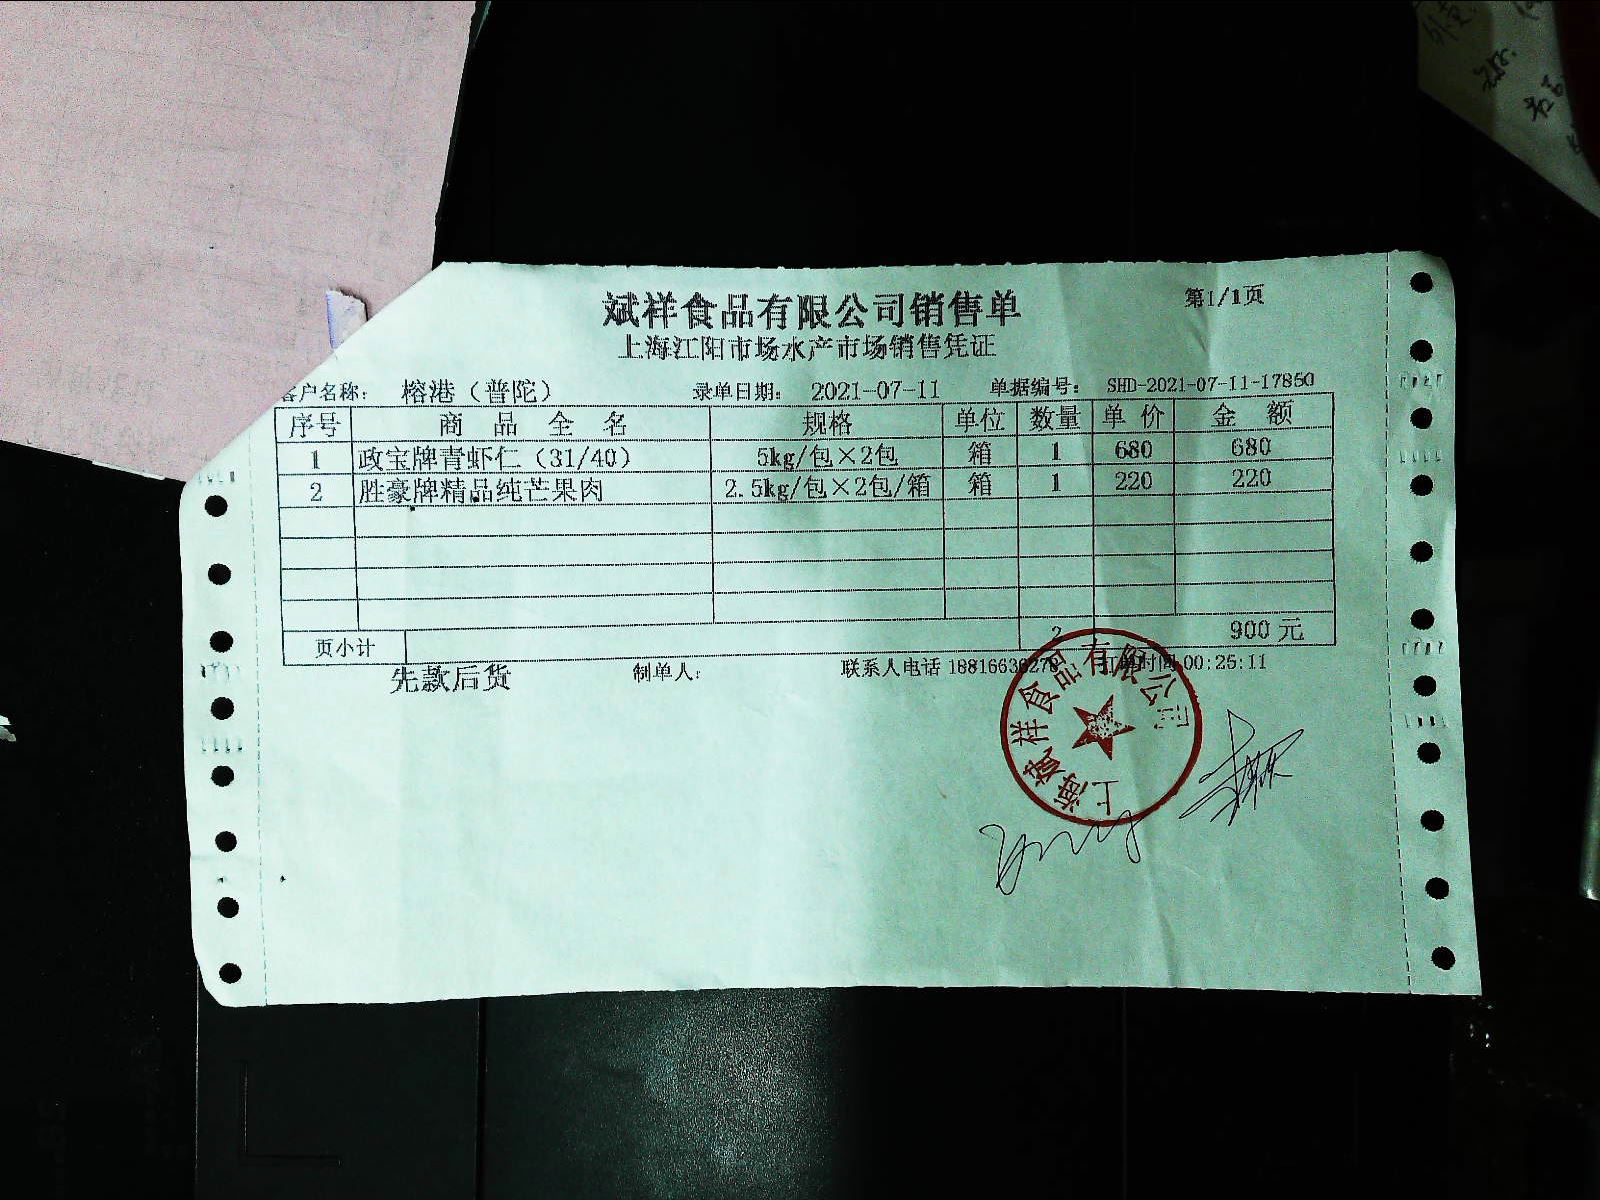 斌祥食品有限公司销售单
第1/1页
上海江阳市场水产市场销售凭证
客户名称: 榕港（普陀） 录单日期: 2021-07-11 单据编号: SHD-2021-07-11-17850
序号 商品全名 规格 单位 数量 单价 金额
1 政宝牌青虾仁（31/40） 5kg/包×2包 箱 1 680 680
2 胜豪牌精品纯芒果肉 2.5kg/包×2包/箱 箱 1 220 220
页小计 2 900 元
先款后货 制单人: 联系人电话 时间 00:25:11
上海斌祥食品有限公司